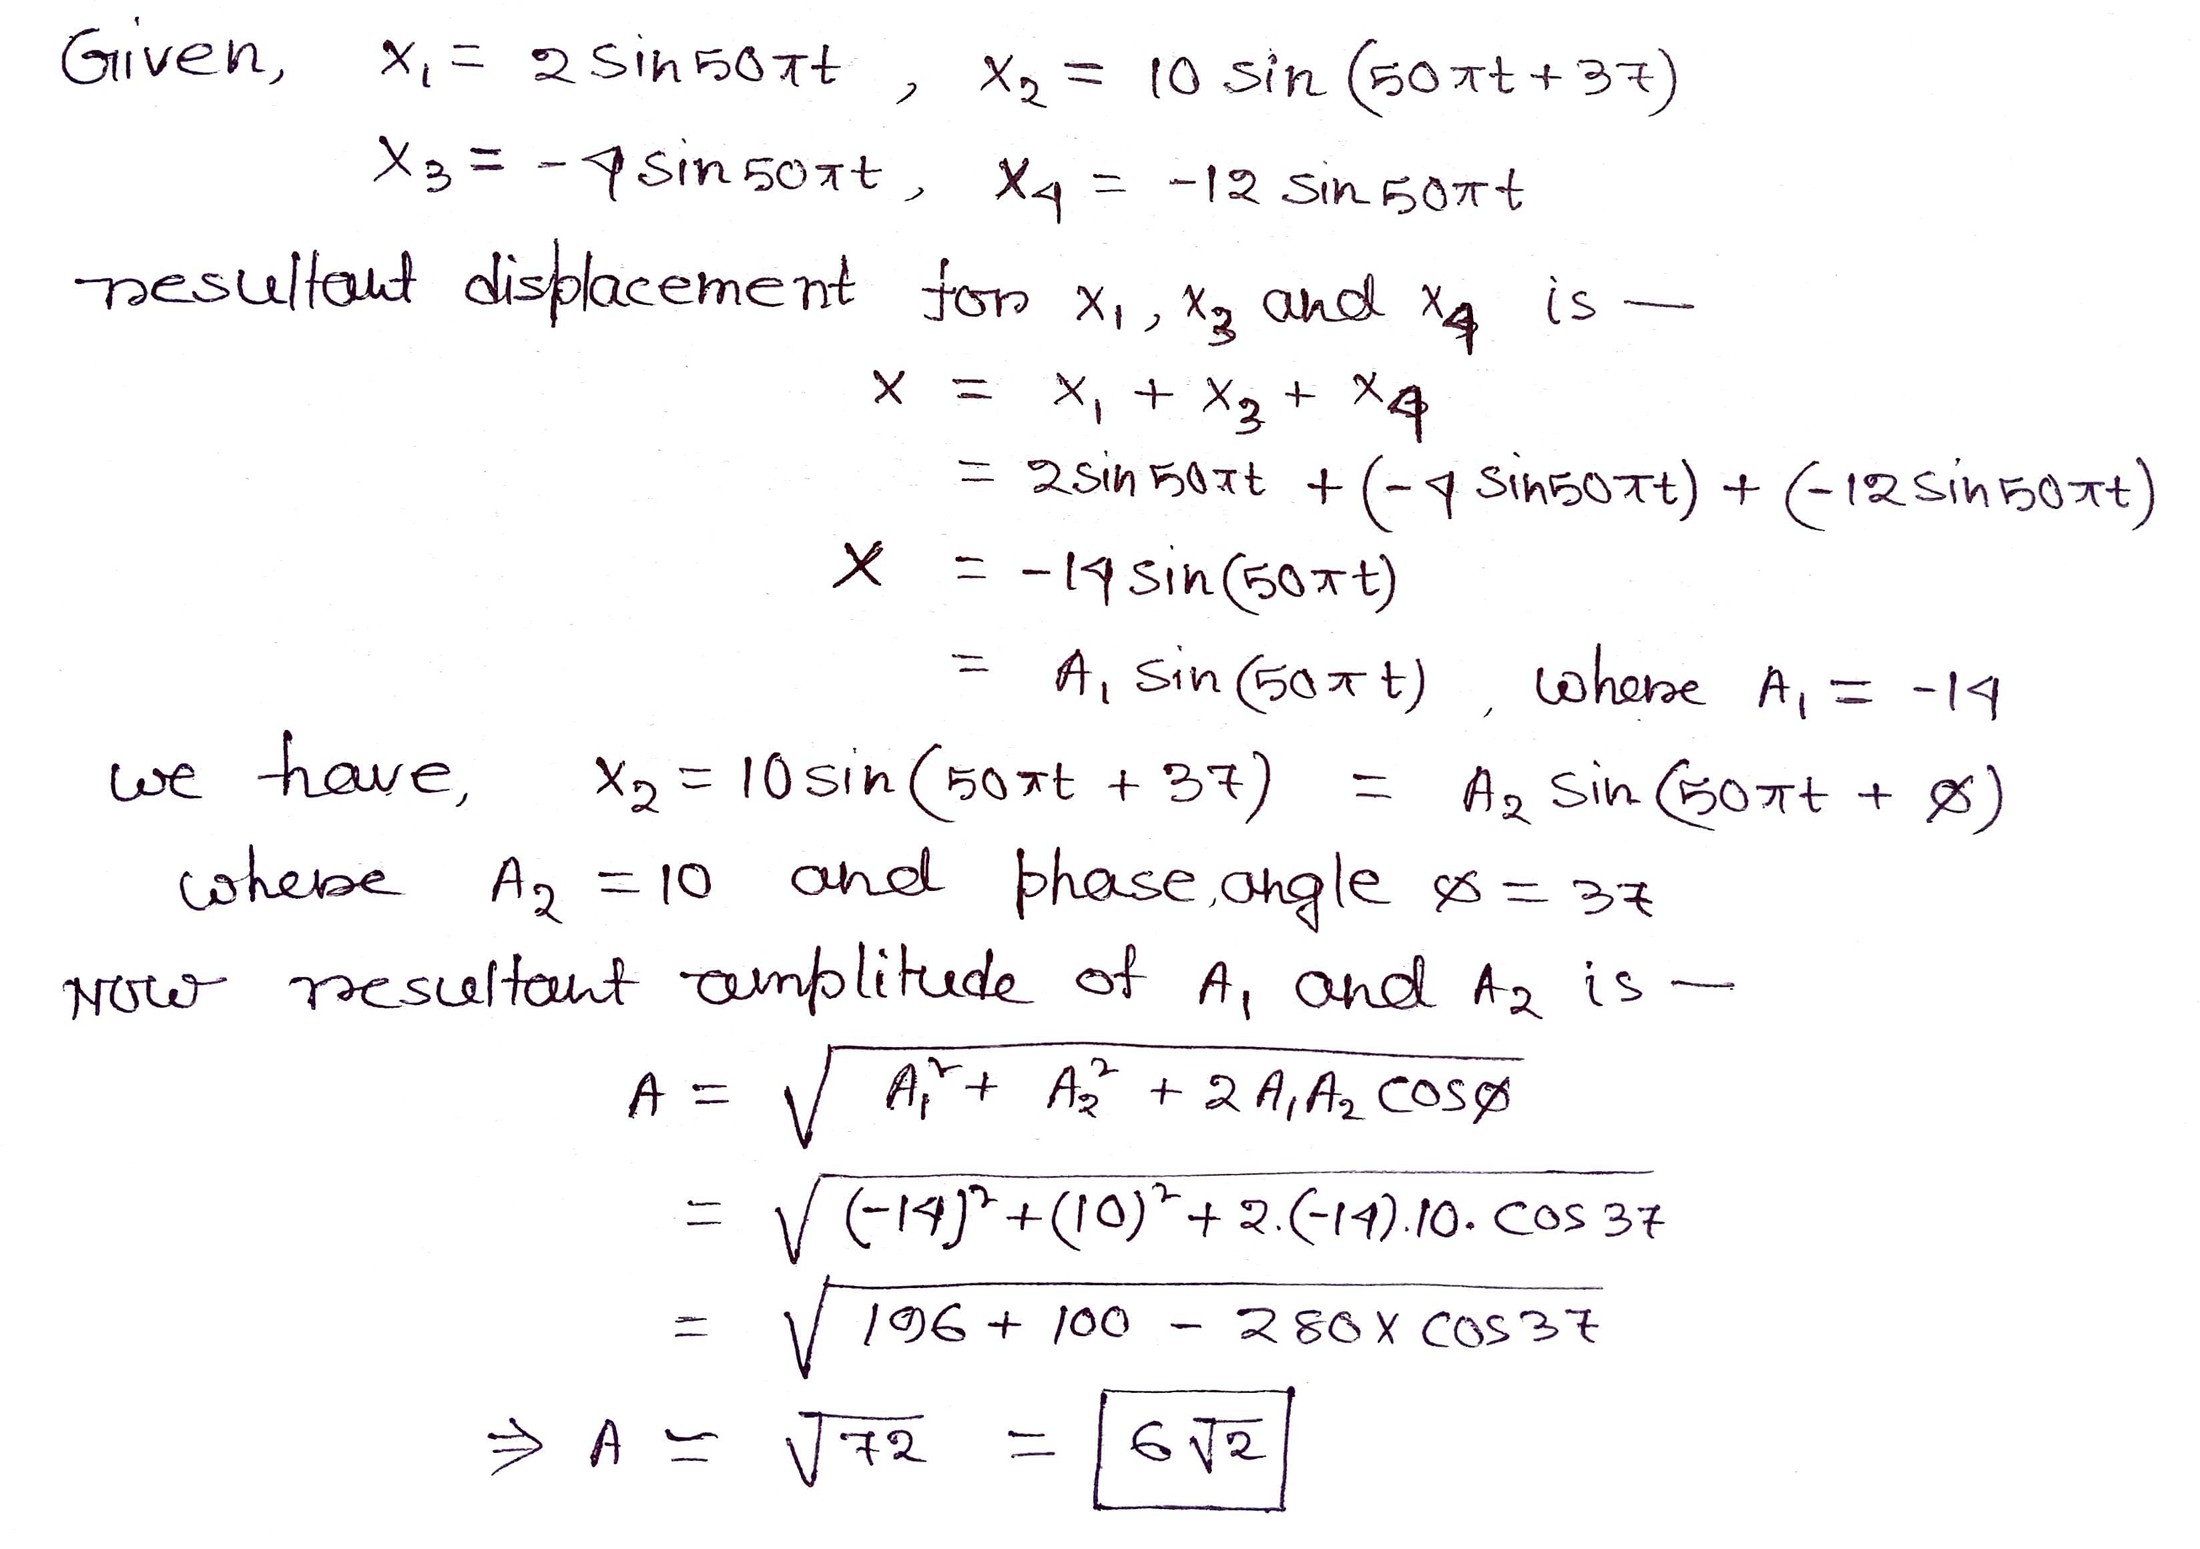 Given, x₁ = 2 sin 50πt , x₂ = 10 sin (50πt + 37)
x₃ = -4 sin 50πt , x₄ = -12 sin 50πt
resultant displacement for x₁, x₃ and x₄ is —
x = x₁ + x₃ + x₄
= 2 sin 50πt + (-4 sin 50πt) + (-12 sin 50πt)
x = -14 sin (50πt)
= A₁ sin (50πt) , where A₁ = -14
we have, x₂ = 10 sin (50πt + 37) = A₂ sin (50πt + ø)
where A₂ = 10 and phase, angle ø = 37
Now resultant amplitude of A₁ and A₂ is —
A = √(A₁² + A₂² + 2 A₁ A₂ cos ø)
= √((-14)² + (10)² + 2.(-14).10. cos 37)
= √(196 + 100 - 280 x cos 37)
⇒ A ≃ √72 = 6√2